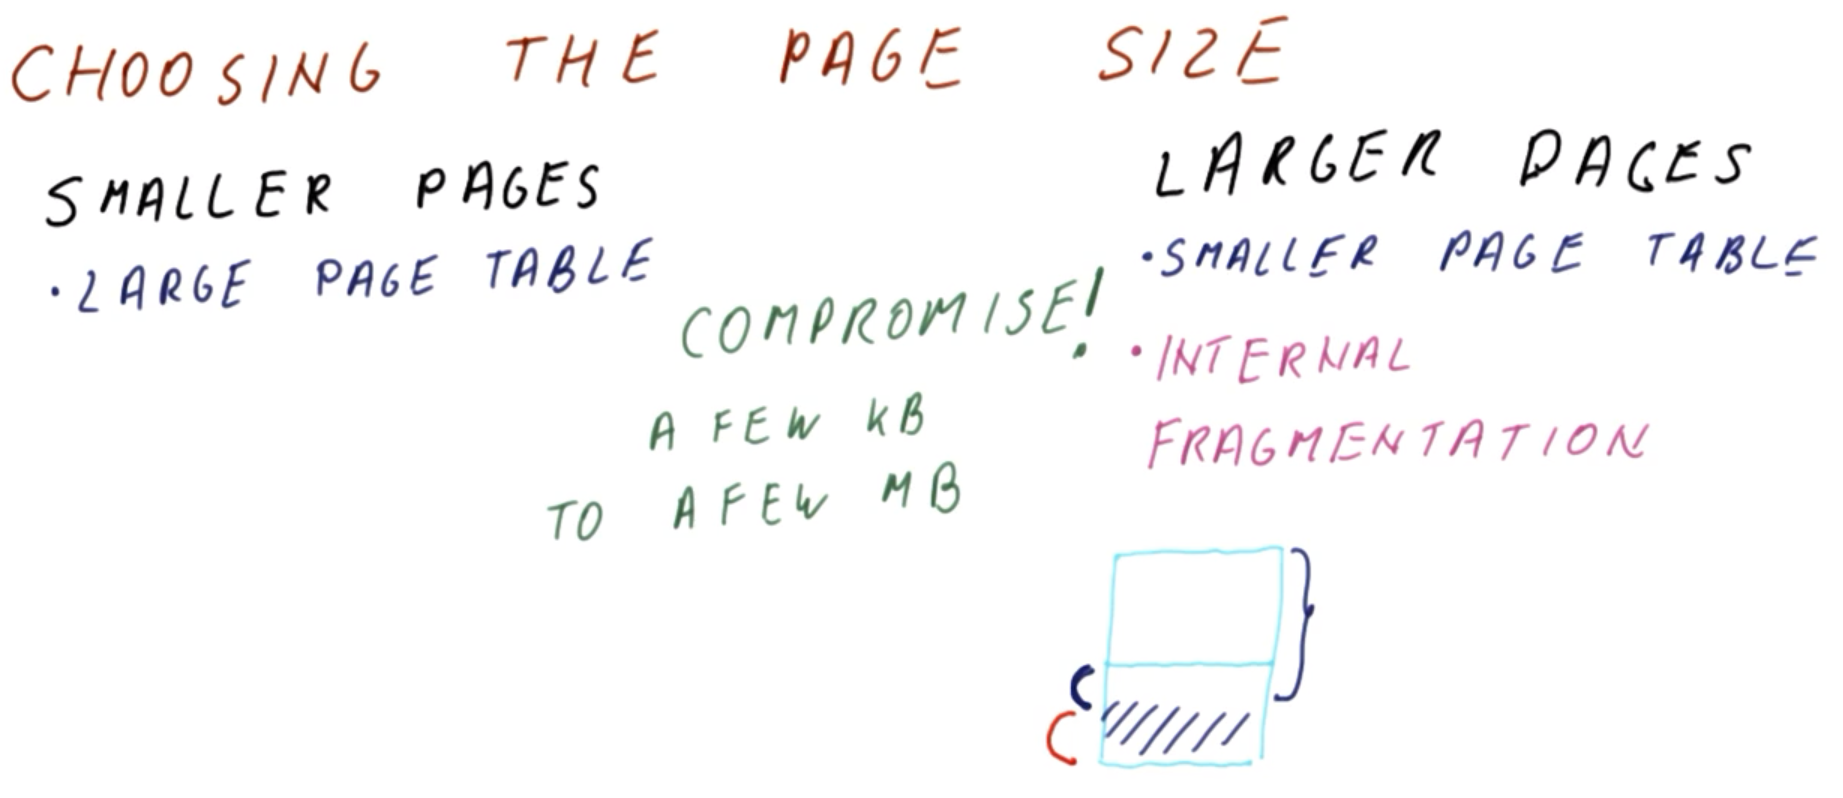 CHOOSING THE PAGE SIZE
SMALLER PAGES
• LARGE PAGE TABLE
COMPROMISE!
A FEW KB
TO A FEW MB
LARGER PAGES
• SMALLER PAGE TABLE
• INTERNAL
FRAGMENTATION